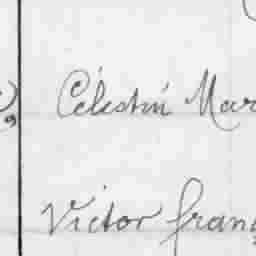 Célestin Mar
Victor franç